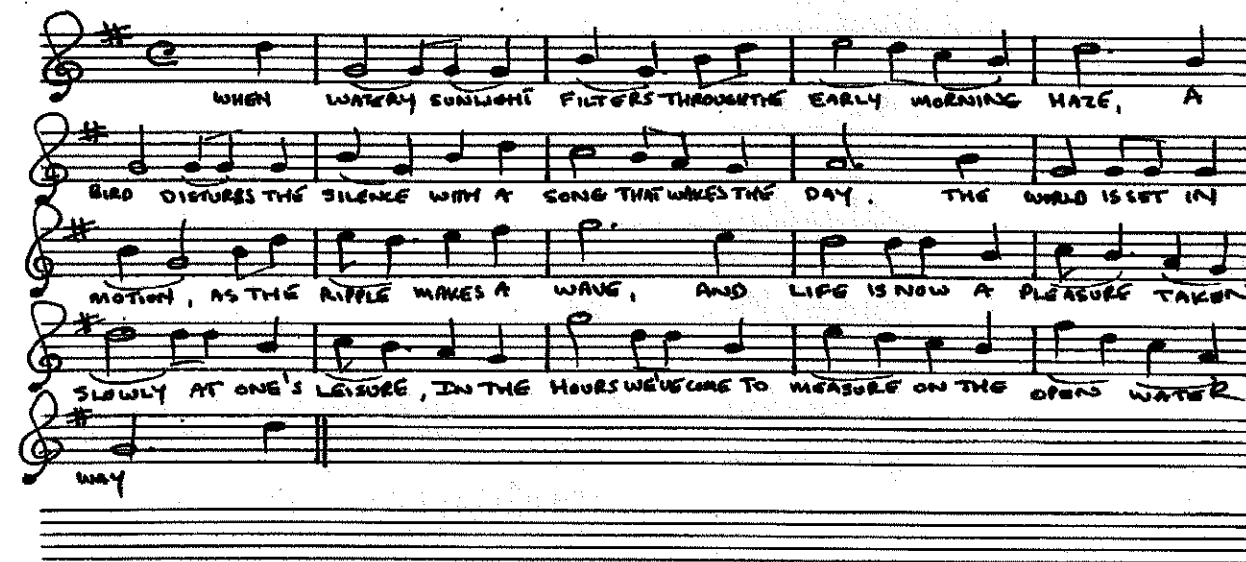 WHEN WATERY SUNLIGHT FILTERS THROUGH THE EARLY MORNING HAZE, A
BIRD DISTURBS THE SILENCE WITH A SONG THAT WAKES THE DAY. THE WORLD IS SET IN
MOTION, AS THE RIPPLE MAKES A WAVE, AND LIFE IS NOW A PLEASURE TAKEN
SLOWLY AT ONE'S LEISURE, IN THE HOURS WE'VE COME TO MEASURE ON THE OPEN WATER
WAY